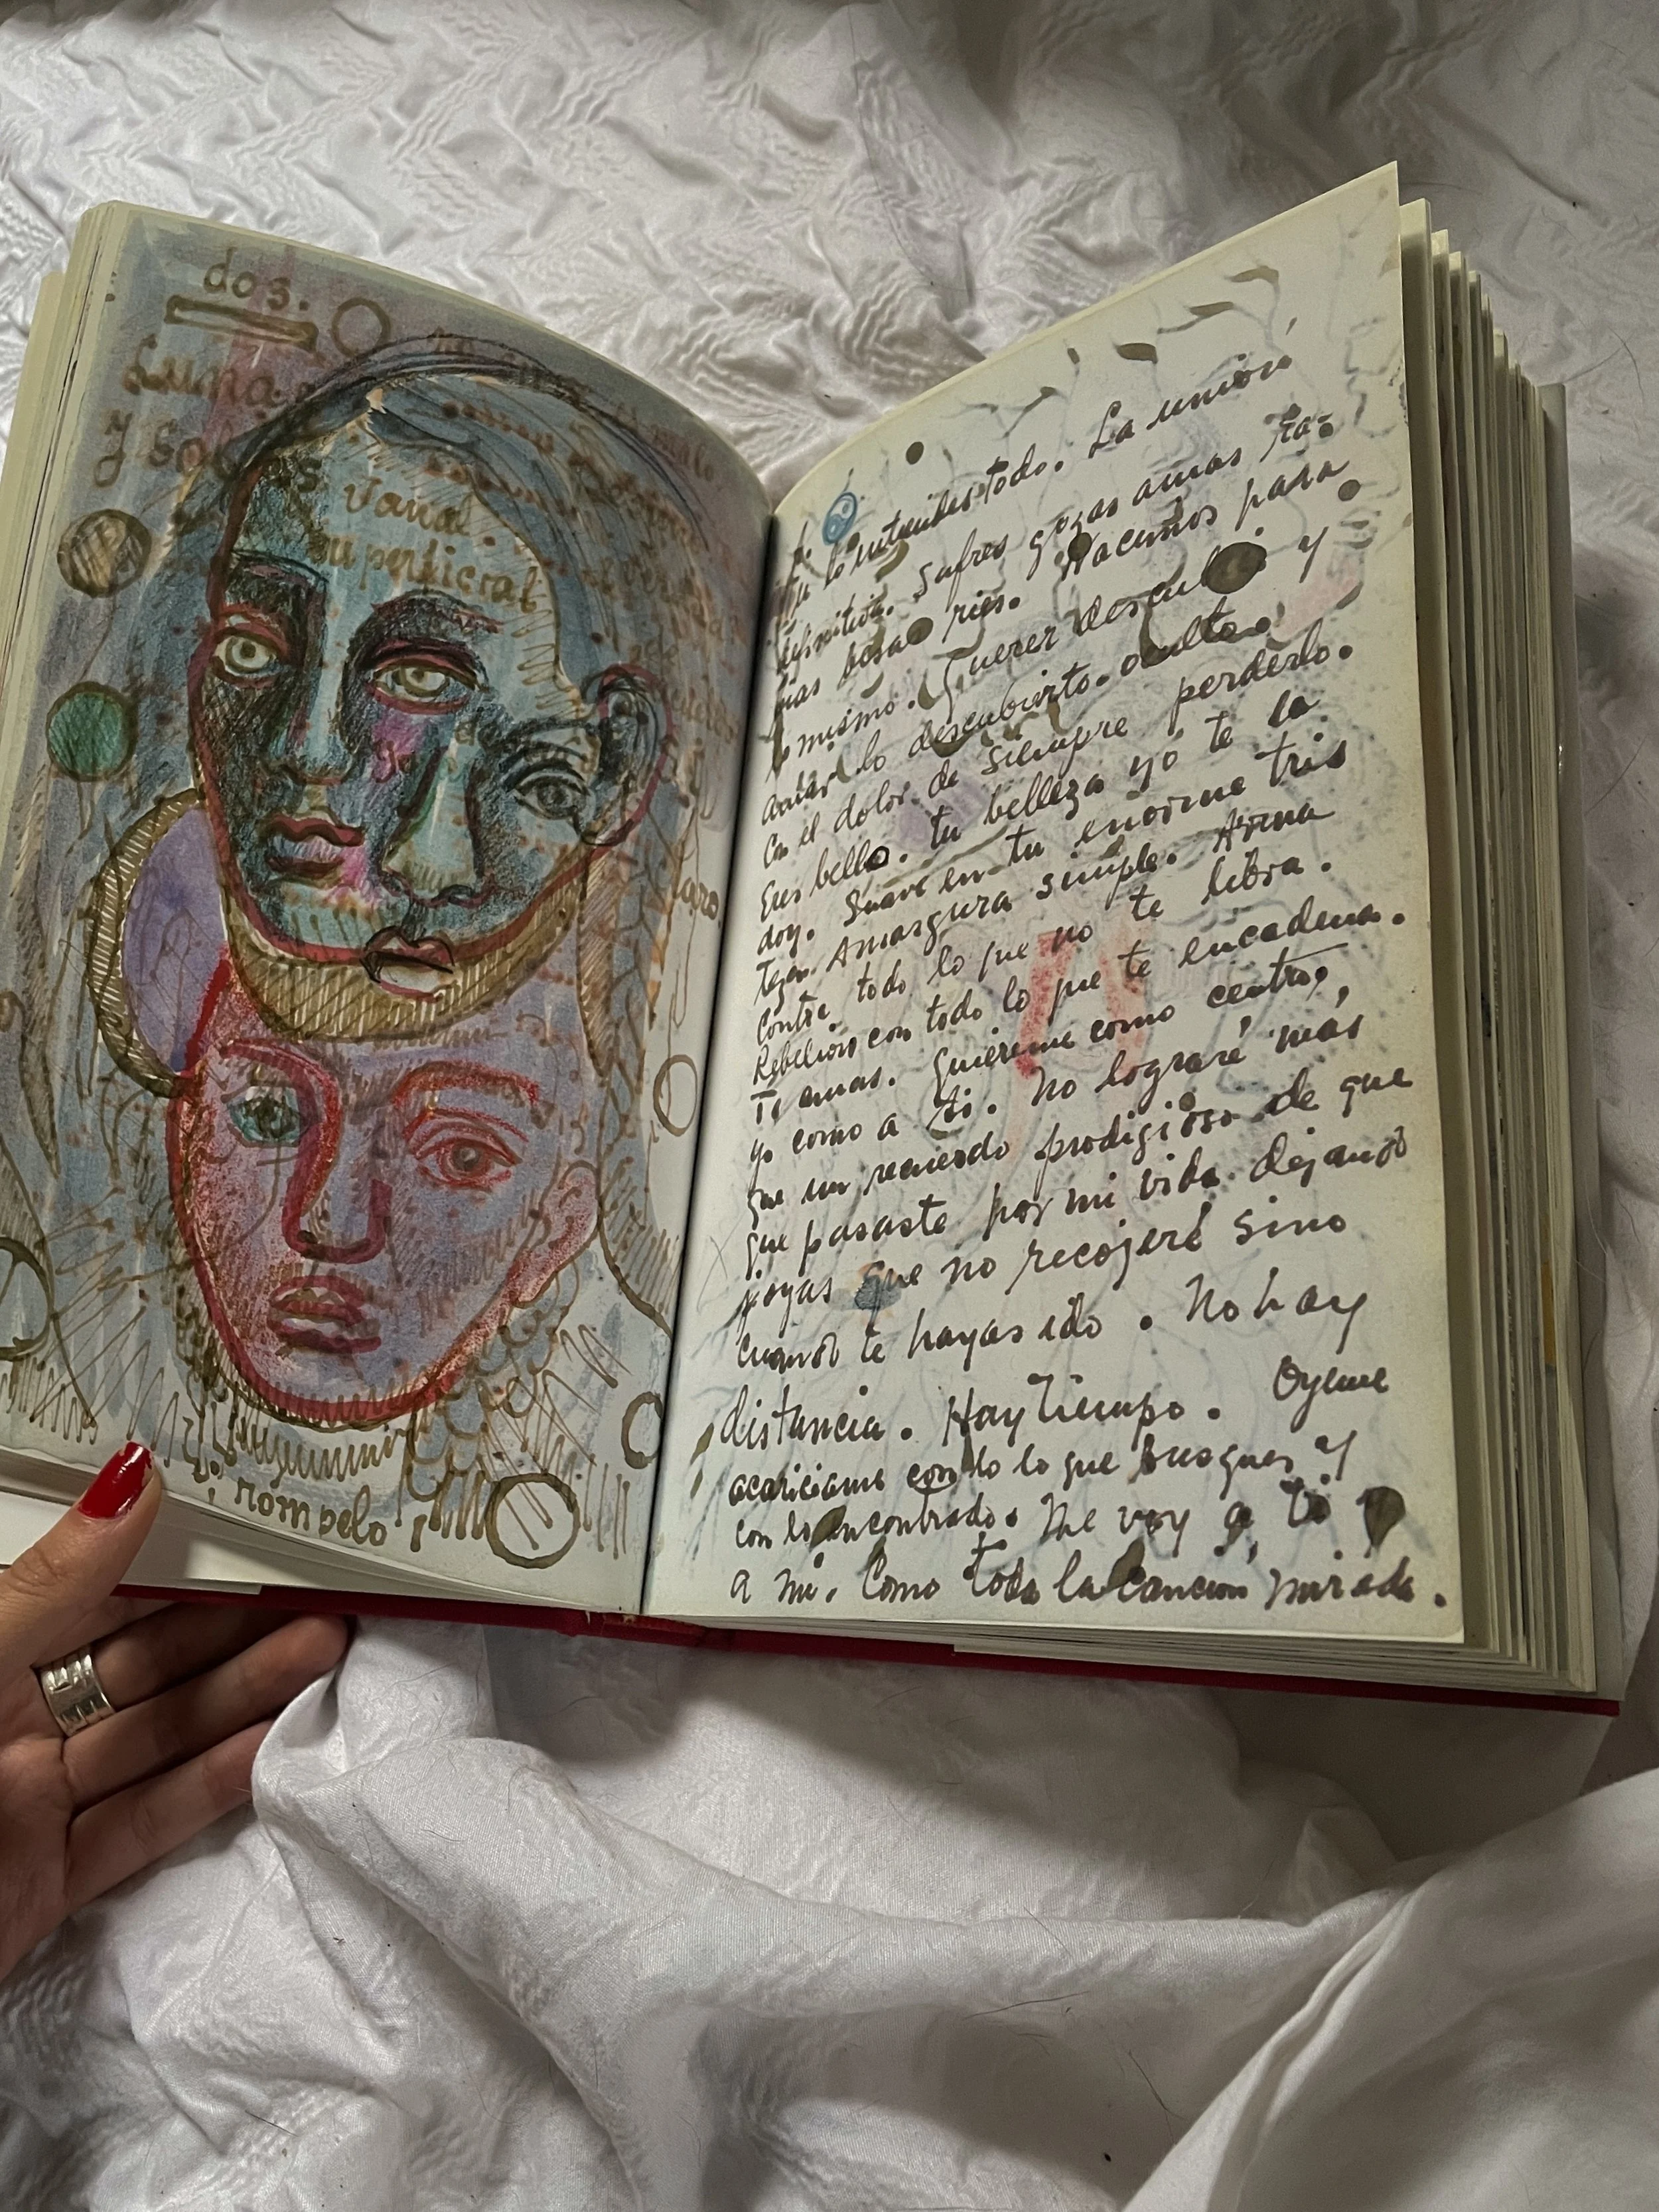 dos.
Luna.
y Soles
vana.
superficial
rómpelo
Tu lo entiendes todo. La unión
definitiva. Sufres gozas amas ra-
bias besas ries. Nacemos para
lo mismo. Querer descubrir y
amar lo descubierto. oculto.
Con el dolor de siempre perderlo.
Eres bello. tu belleza yo te la
doy. Suave en tu enorme tris
teza. Amargura simple. Arma
contra todo lo que no te libra.
Rebelion con todo lo que te encadena.
Te amas. Quiereme como centro,
yo como a ti. No lograré más
que un recuerdo prodigioso de que
que pasaste por mi vida dejando
joyas que no recojeré sino
cuando te hayas ido. No hay
distancia. Hay tiempo. Oyeme
acariciame con lo lo que busques y
con lo encontrado. Me voy a ti y
a mi. Como toda la canción mirada.